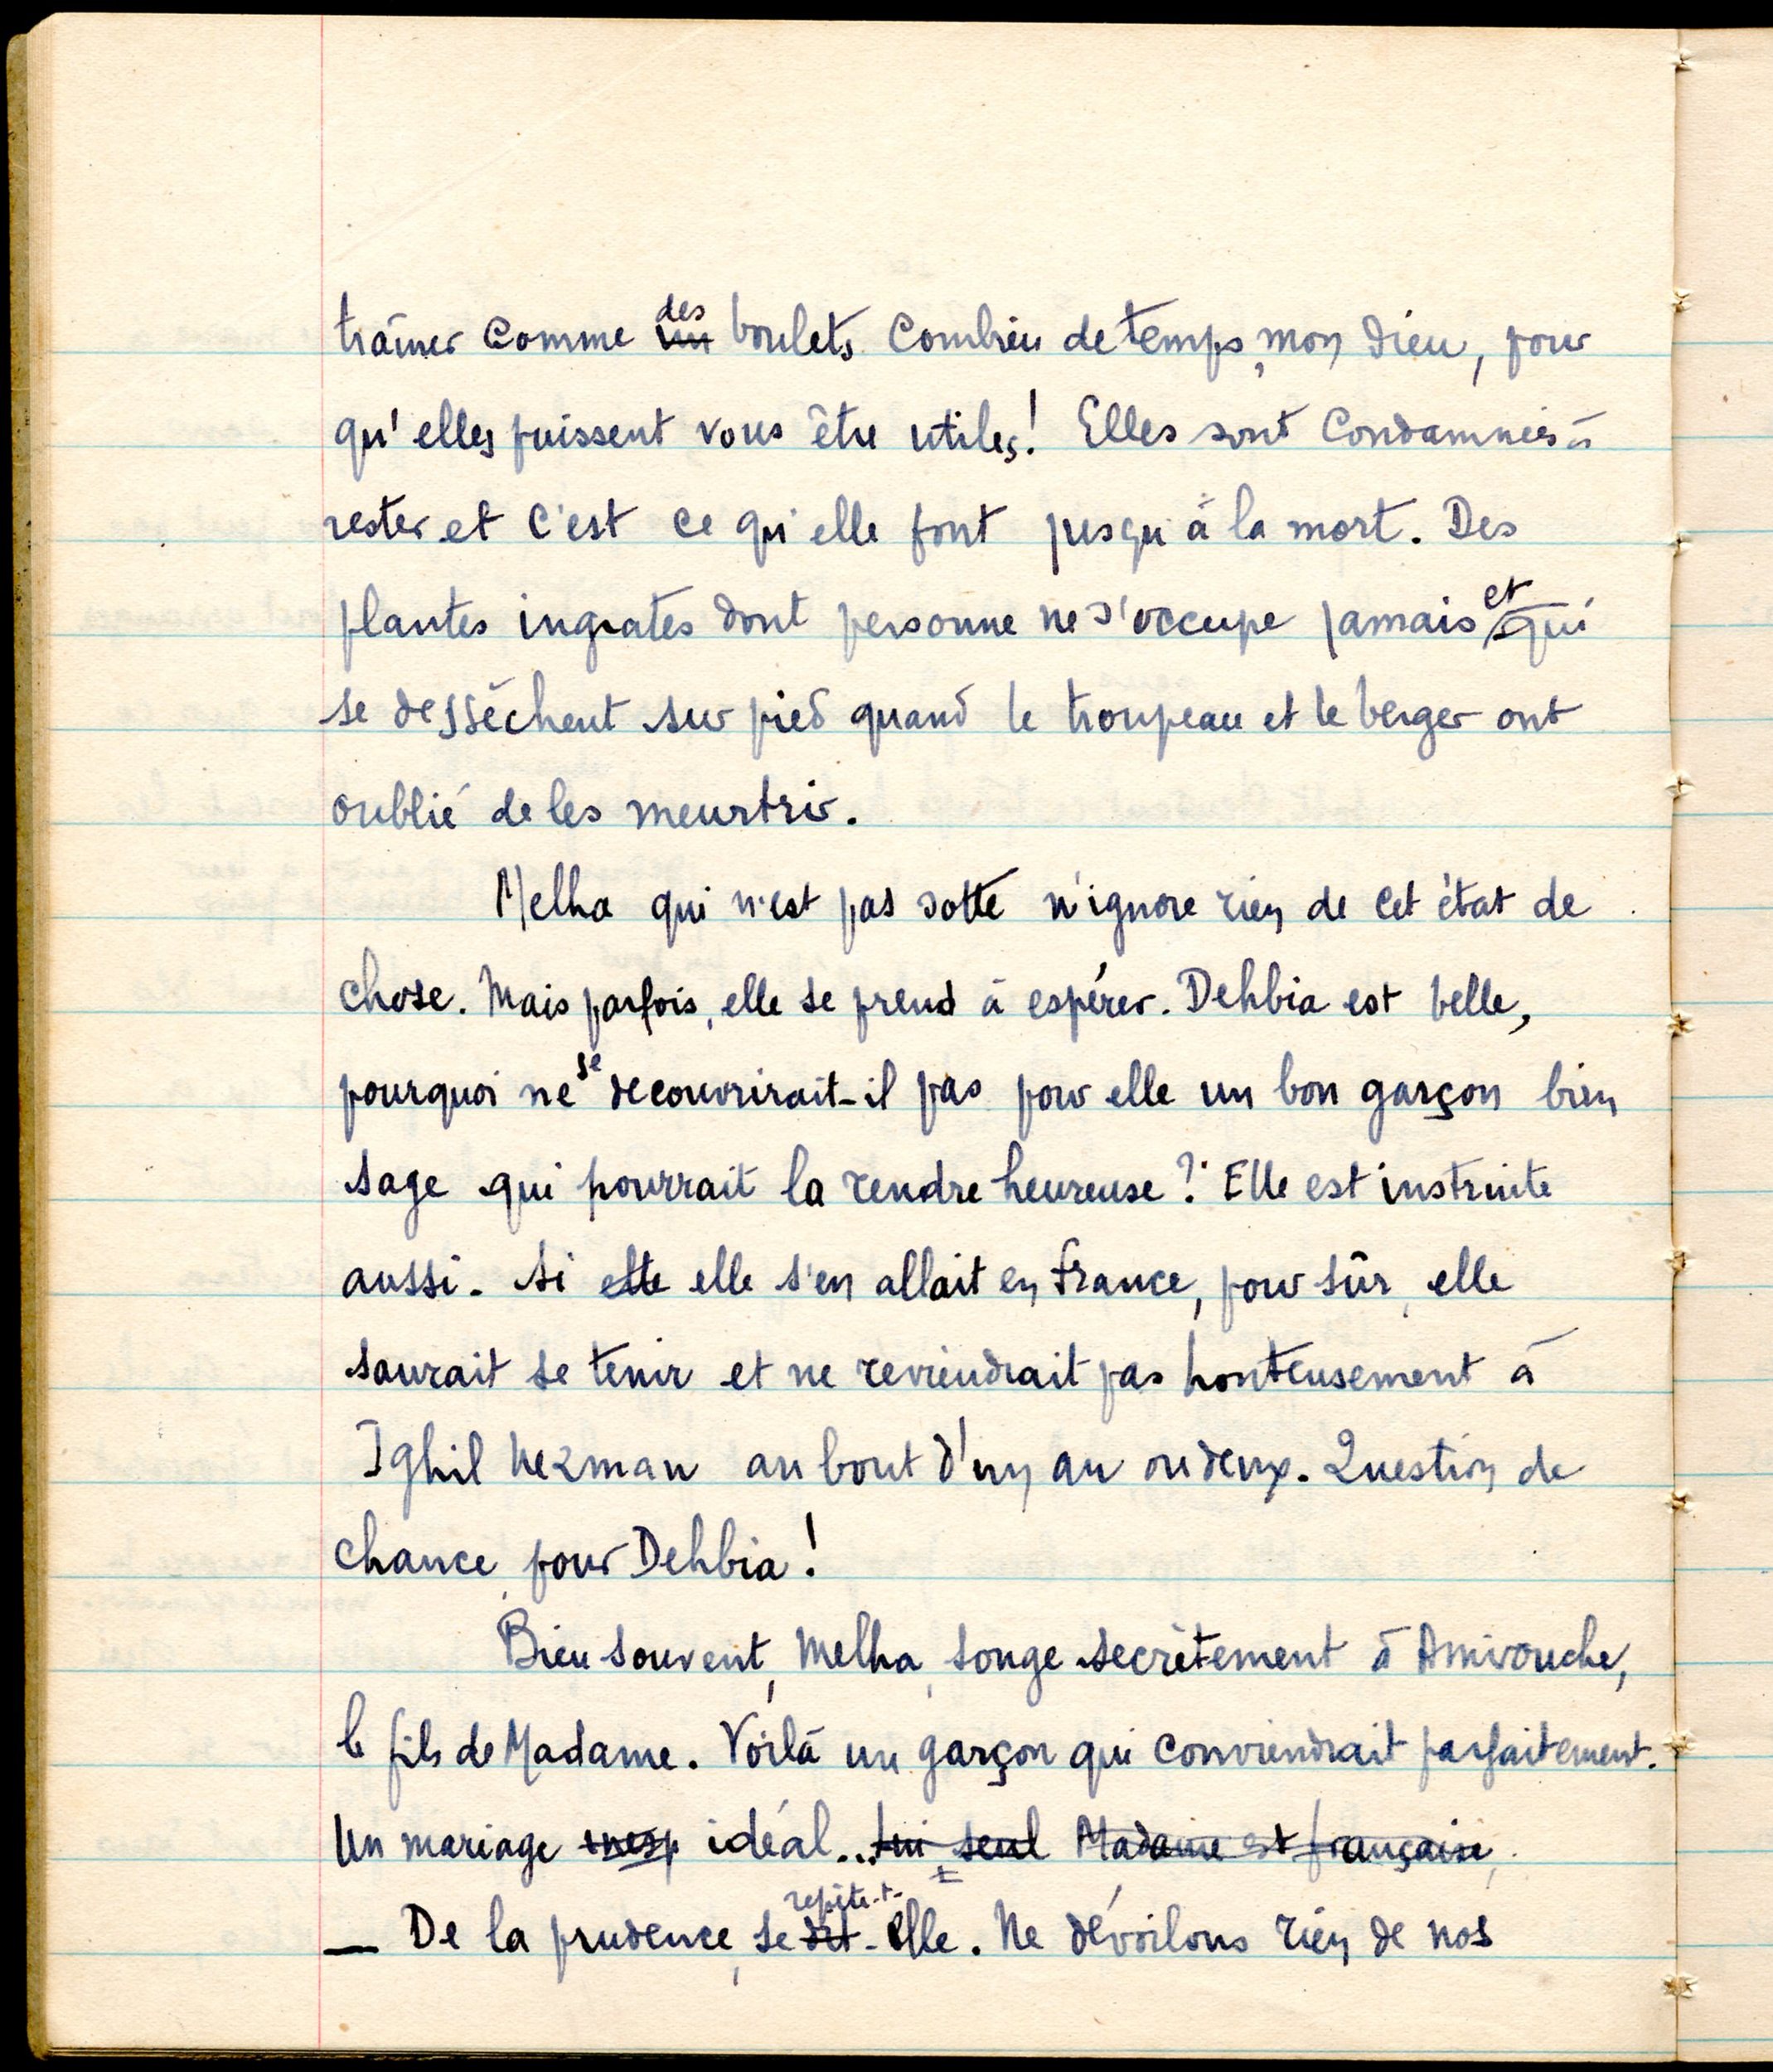 traîner comme ~~un~~ des boulets. Combien de temps, mon Dieu, pour
qu'elles puissent vous être utiles! Elles sont condamnées à
rester et c'est ce qu'elle font jusqu'à la mort. Des
plantes ingrates dont personne ne s'occupe jamais et qui
se dessèchent sur pied quand le troupeau et le berger ont
oublié de les meurtrir.
Melha qui n'est pas sotte n'ignore rien de cet état de
chose. Mais parfois, elle se prend à espérer. Dehbia est belle,
pourquoi ne se decouvrirait-il pas pour elle un bon garçon bien
sage qui pourrait la rendre heureuse? Elle est instruite
aussi. Si ~~elle~~ elle s'en allait en France, pour sûr, elle
saurait se tenir et ne reviendrait pas honteusement à
Ighil Nezman au bout d'un an ou deux. Question de
chance pour Dehbia!
Bien souvent, Melha, songe secrètement à Amirouche,
le fils de Madame. Voilà un garçon qui conviendrait parfaitement.
Un mariage idéal... ~~lui seul~~ ~~Madame est française~~
— De la prudence, se ~~dit~~ repète-t-elle. Ne dévoilons rien de nos